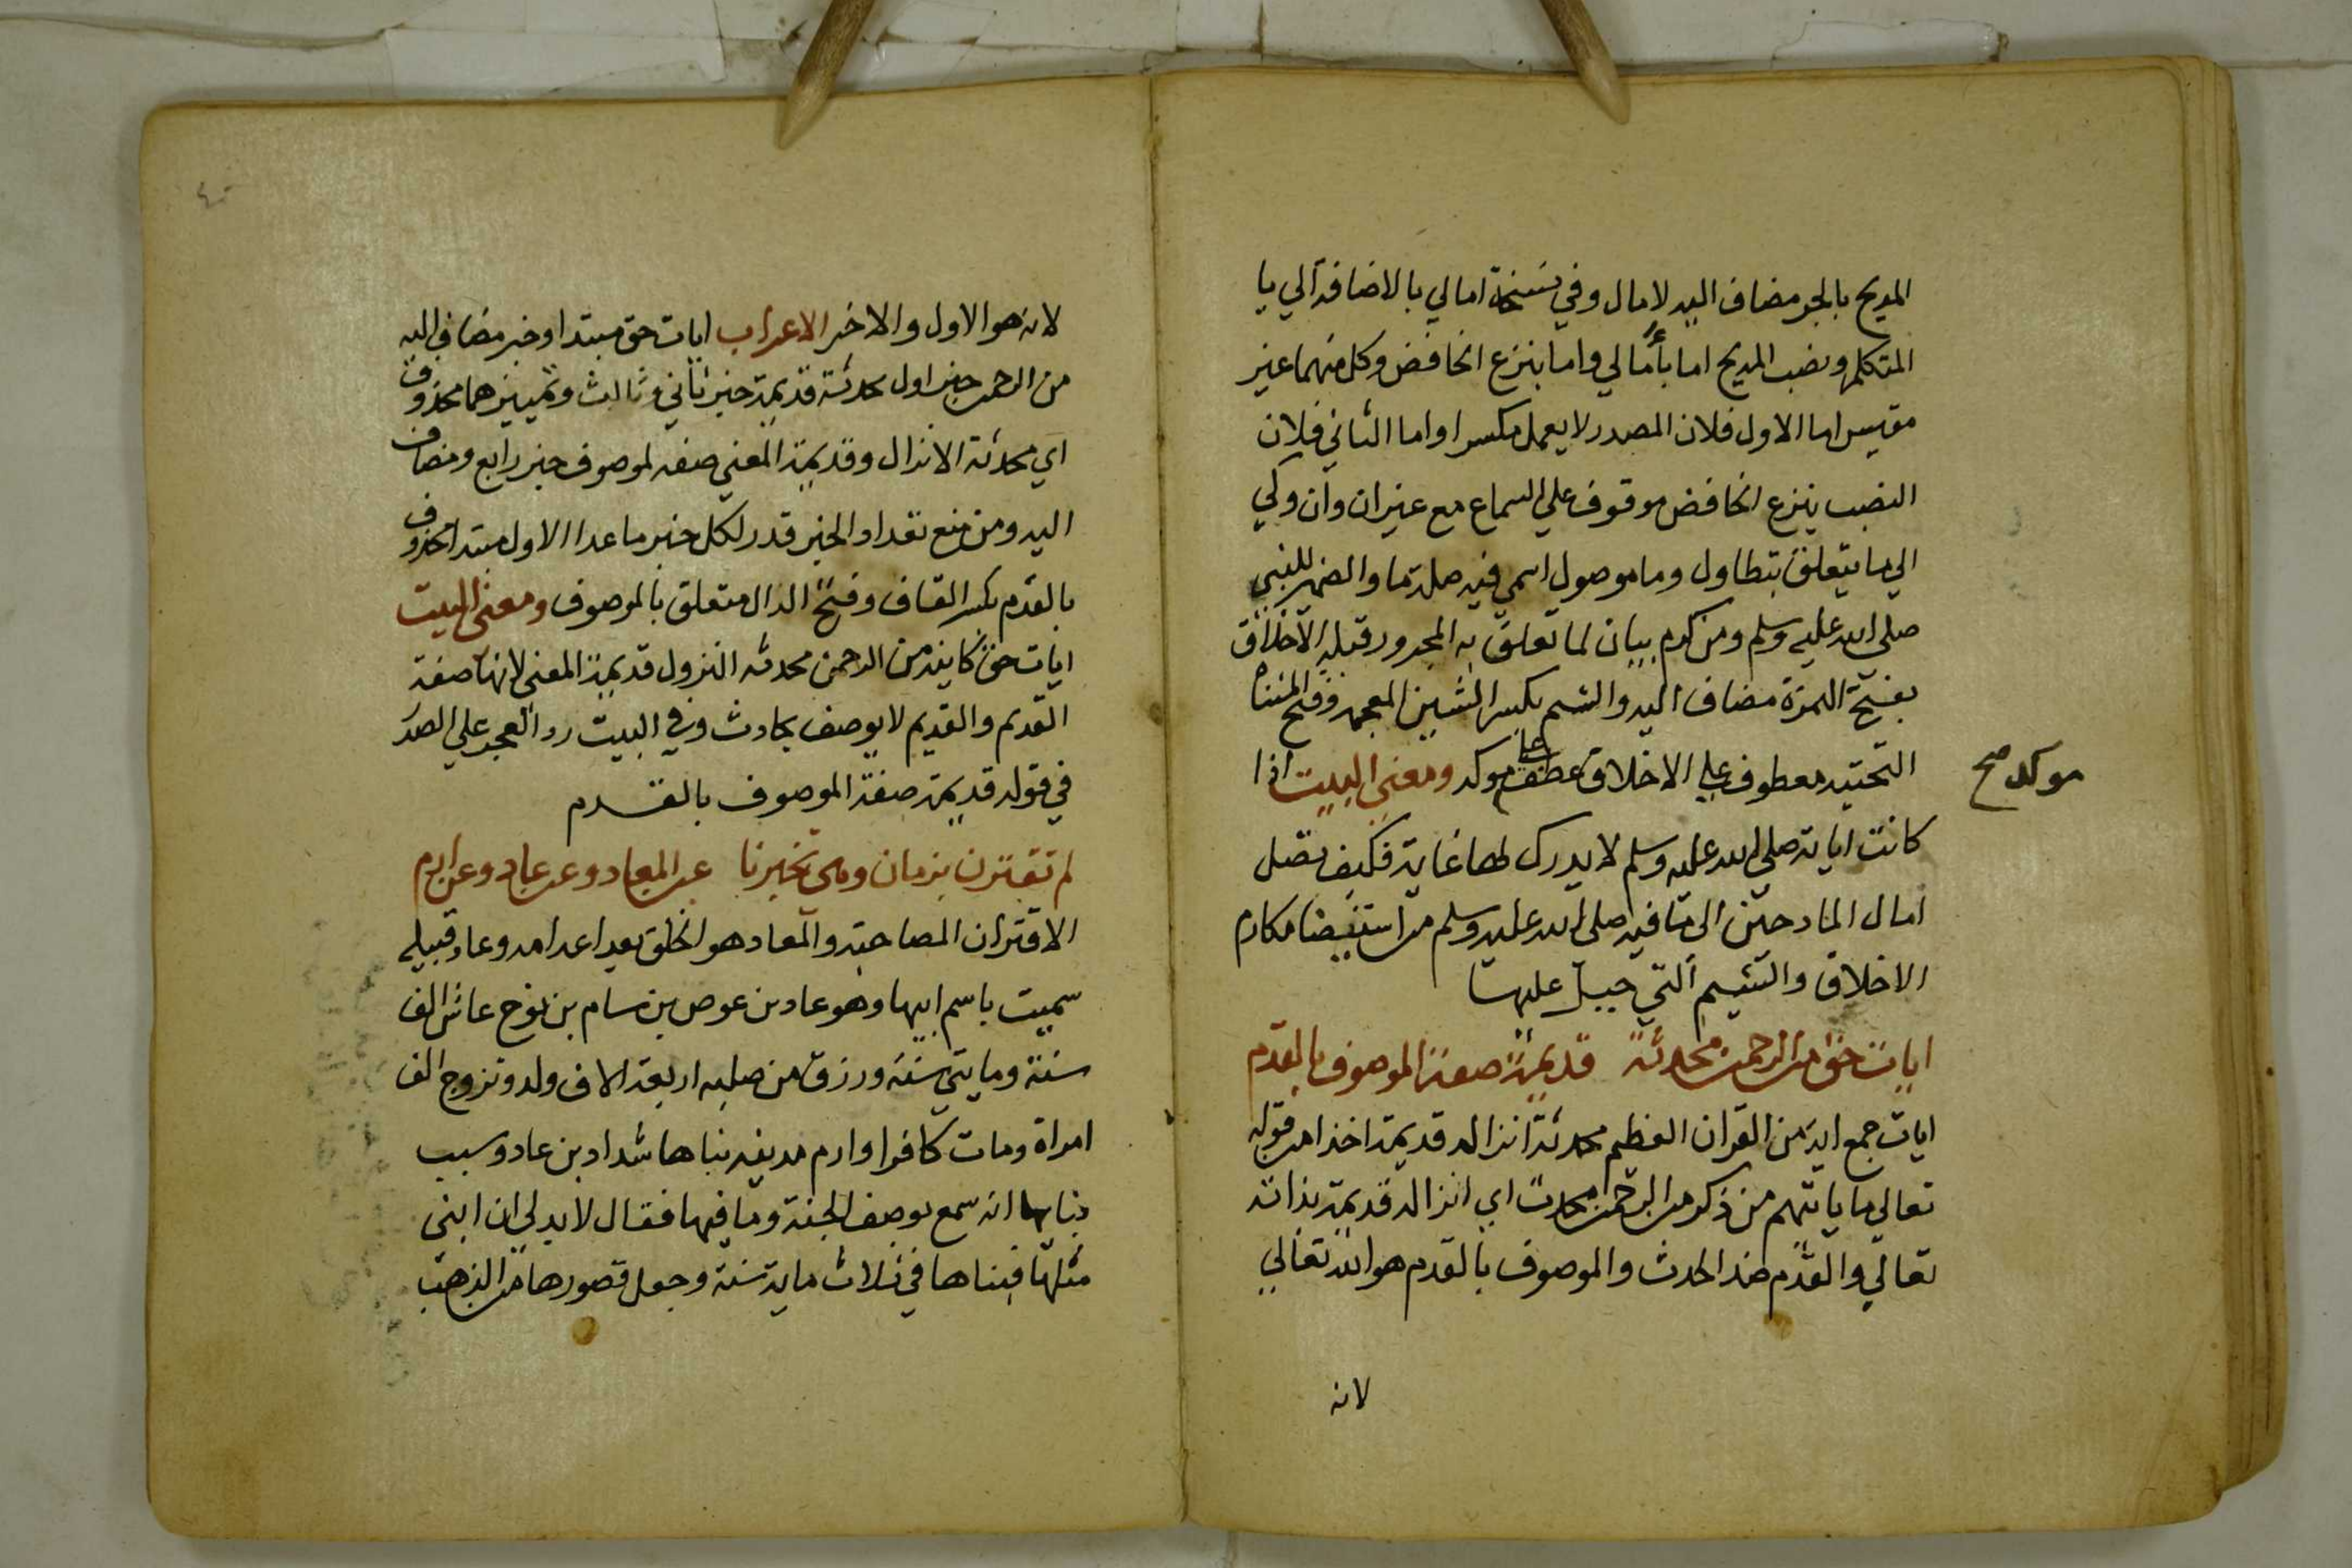 المديح بالجر مضاف اليه لامال وفي نسخة امالي بالاضافة الي يا
المتكلم ونصب المديح اما بأمالي واما بنزع الخافض وكل منهما غير
مقيس اما الاول فلان المصدر لا يعمل مكسرا واما الثاني فلان
النصب بنزع الخافض موقوف علي السماع مع غير ان وأن وكي
الي ما يتعلق بتطاول وما موصول اسمي فيه صلة ما والضمير للنبي
صلى الله عليه وسلم ومن كرم بيان لما تعلق به المجرور قبله الاخلاق
بفتح الهمزة مضاف اليه والشيم بكسر الشين المعجمة وفتح المثناة
التحتيه معطوف علي الاخلاق عطف موكد ومعني البيت اذا
موكد صح
كانت اياته صلي الله عليه وسلم لا يدرك لها غاية فكيف تصل
امال المادحين الى ما فيه صلى الله عليه وسلم من استيفضا مكارم
الاخلاق والشيم التي جبل عليها
ايات حق من الرحمن محدثة قديمة صفة الموصوف بالقدم
ايات جمع اية من القران العظيم محدثة انزاله قديمة اخذا من قوله
تعالي ما ياتيهم من ذكر من الرحمن محدث اي انزاله قديمة بذاته
تعالي والقدم ضد الحدث والموصوف بالقدم هو الله تعالي
لانه
لانه هو الاول والاخر الاعراب ايات حق مبتدا وخبر مضاف اليه
من الرحمن خبر اول محدثة قديمة خبر ثاني وثالث وتمييزهما محذوف
اي محدثة الانزال وقديمة المعني صفة لموصوف خبر رابع ومضاف
اليه ومن منع تعداد الخبر قدر لكل خبر ما عدا الاول مبتدا محذوف
بالقدم بكسر القاف وفتح الدال متعلق بالموصوف ومعنى البيت
ايات حق كاينة من الرحمن محدثه النزول قديمة المعني لانها صفة
القديم والقديم لا يوصف بحادث وفي البيت رد العجز علي الصدر
في قوله قديمة صفة الموصوف بالقدم
لم تقترن بزمان وهي تخبرنا عن المعاد وعن عاد وعن ارم
الاقتران المصاحبة والمعاد هو الخلق بعد اعدامه وعاد قبيله
سميت باسم ابيها وهو عاد بن عوص بن سام بن نوح عاش الف
سنة ومايتي سنة ورزق من صلبه اربعة الاف ولد وتزوج الف
امراة ومات كافرا وارم مدينه بناها شداد بن عاد وسبب
بنايها انه سمع بوصف الجنة وما فيها فقال لا بد لي ان ابني
مثلها فبناها في ثلاث ماية سنة وجعل قصورها من الذهب